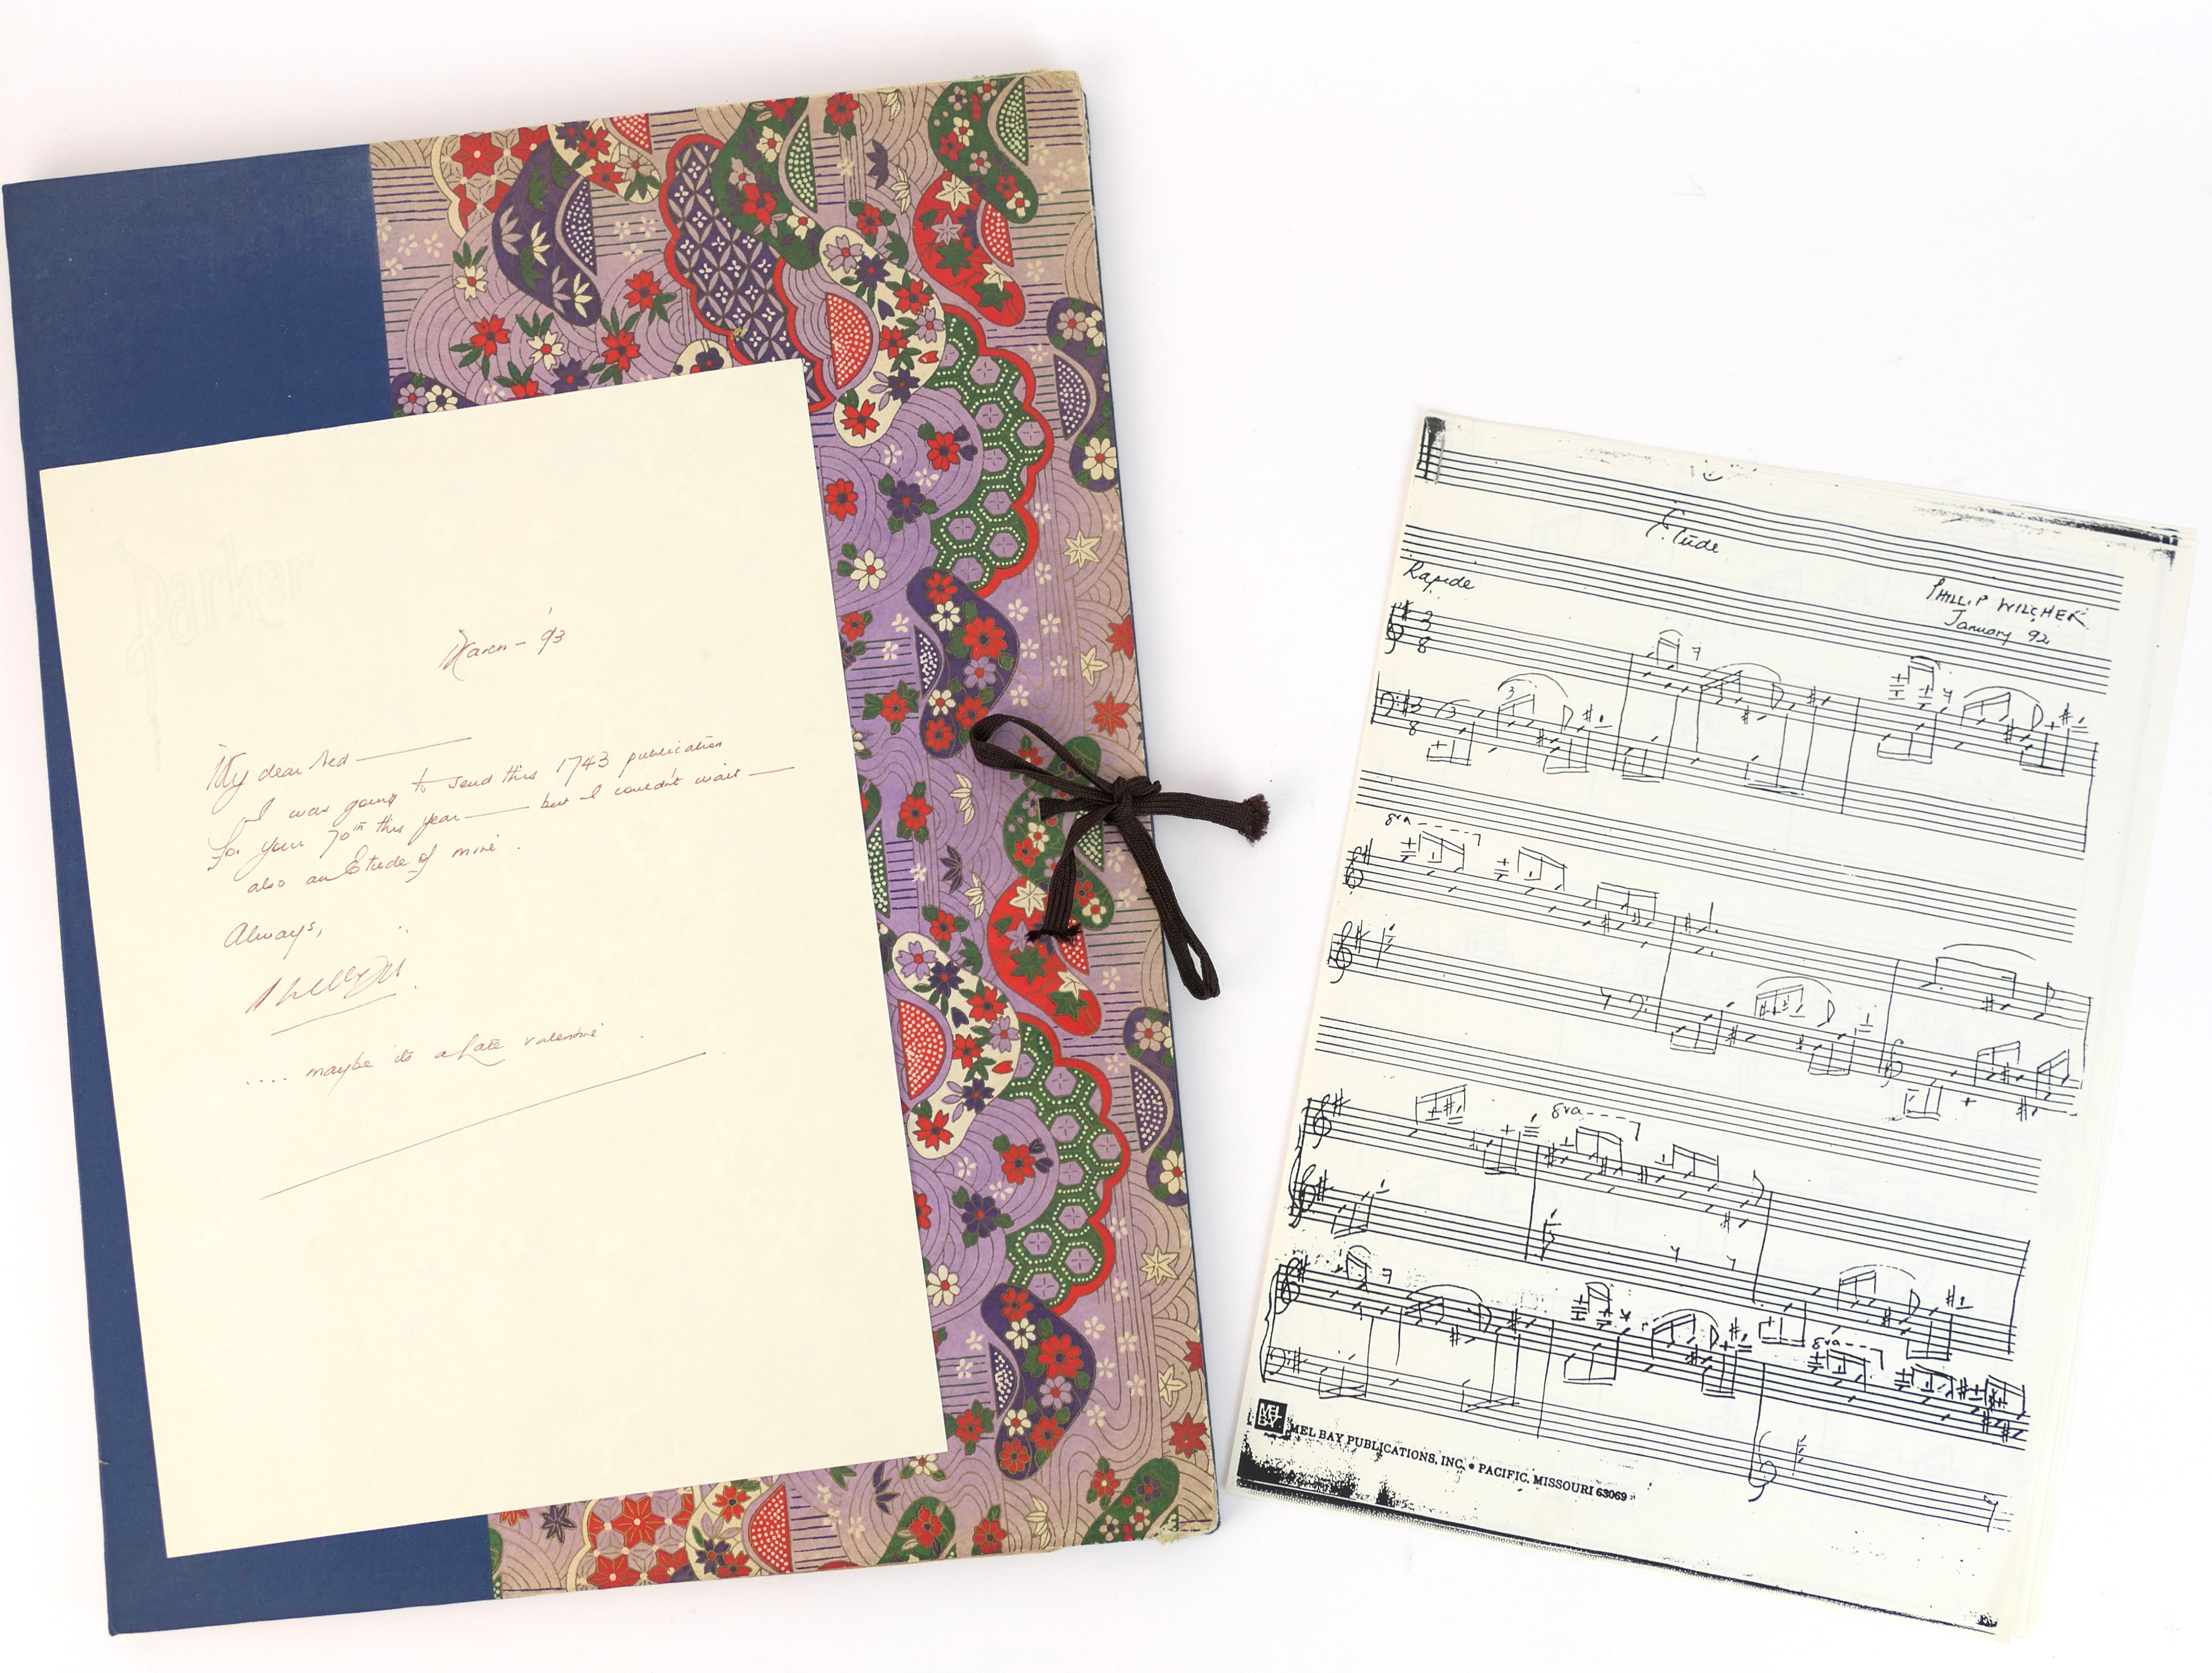 Parker
March - '93
My dear Ned
I was going to send this 1743 publication
for your 70th this year — but I couldn't wait —
also an Etude of mine.
Always,
.... maybe its a late valentine
Étude
Rapide
PHILLIP WILCHER
January 92
3
8
3
8
3
8va
8va
8va
MEL BAY
MEL BAY PUBLICATIONS, INC. • PACIFIC, MISSOURI 63069